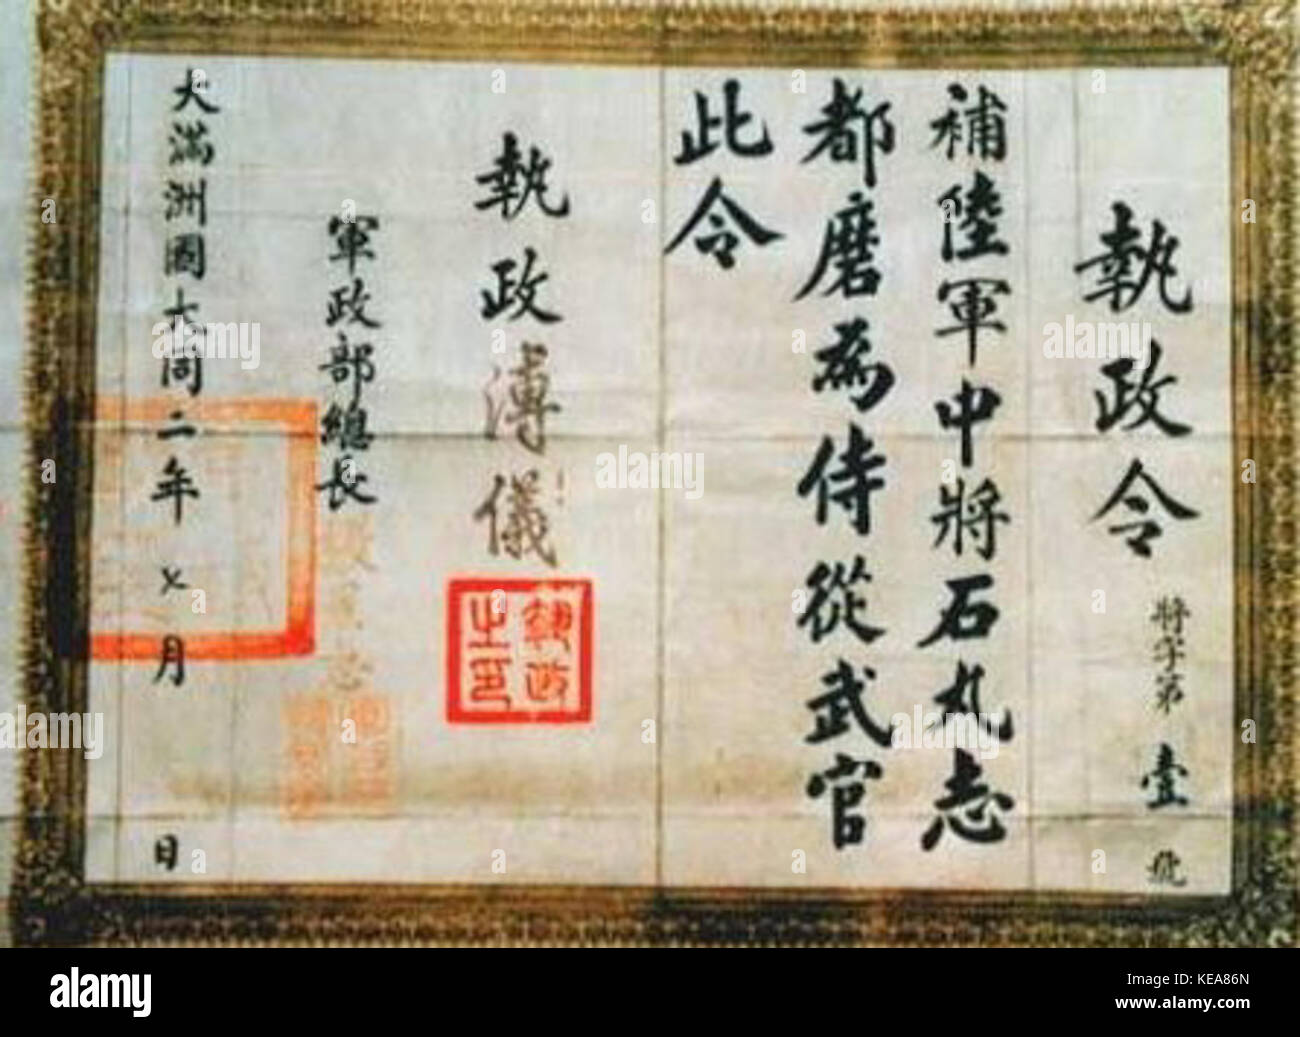 執政令
將字第壹號
補陸軍中將石丸志
都磨為侍從武官
此令
執政溥儀
執政之印
軍政部總長
大滿洲國大同二年七月 日
alamy stock photo
KEA86N
www.alamy.com